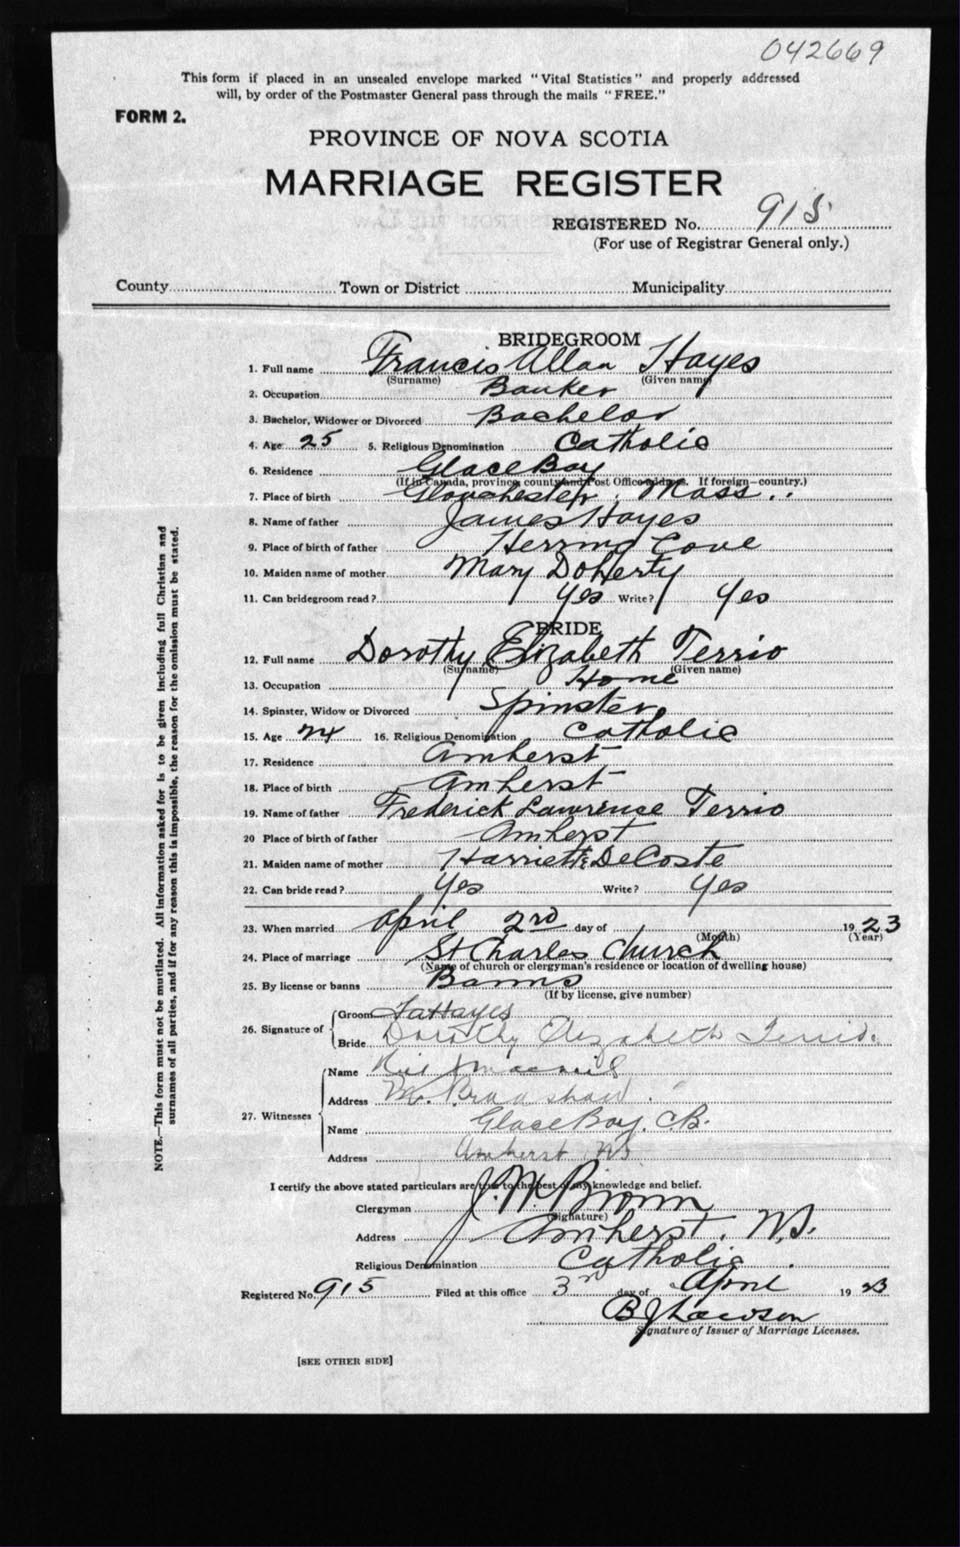 042669
This form if placed in an unsealed envelope marked "Vital Statistics" and properly addressed
will, by order of the Postmaster General pass through the mails "FREE."
FORM 2.
PROVINCE OF NOVA SCOTIA
MARRIAGE REGISTER
REGISTERED No. 915
(For use of Registrar General only.)
County Town or District Municipality
BRIDEGROOM
1. Full name Francis Allan Hayes
(Surname) (Given name)
2. Occupation Banker
3. Bachelor, Widower or Divorced Bachelor
4. Age 25 5. Religious Denomination Catholic
6. Residence Glace Bay
(If in Canada, province, county and Post Office address. If foreign—country.)
7. Place of birth Glouchester, Mass..
8. Name of father James Hayes
9. Place of birth of father Herring Cove
10. Maiden name of mother Mary Doherty
11. Can bridegroom read? Yes Write? Yes
BRIDE
12. Full name Dorothy Elizabeth Terrio
(Surname) (Given name)
13. Occupation Home
14. Spinster, Widow or Divorced Spinster
15. Age 24 16. Religious Denomination Catholic
17. Residence Amherst
18. Place of birth Amherst
19. Name of father Frederick Lawrence Terrio
20 Place of birth of father Amherst
21. Maiden name of mother Harriett DeCoste
22. Can bride read? Yes Write? Yes
23. When married April 2nd day of 1923
(Month) (Year)
24. Place of marriage St Charles Church
(Name of church or clergyman's residence or location of dwelling house)
25. By license or banns Banns
(If by license, give number)
26. Signature of Groom FAHayes
Bride Dorothy Elizabeth Terrio.
27. Witnesses
Name
Address M. Bradshaw.
Name Glace Bay. CB.
Address Amherst NS
I certify the above stated particulars are true to the best of my knowledge and belief.
Clergyman J. W. Brown
(Signature)
Address Amherst. N.S.
Religious Denomination Catholic.
Registered No. 915 Filed at this office 3rd day of April 1923
B J Lawson
Signature of Issuer of Marriage Licenses.
[SEE OTHER SIDE]
NOTE.—This form must not be mutilated. All information asked for is to be given including full Christian and
surnames of all parties, and if for any reason this is impossible, the reason for the omission must be stated.